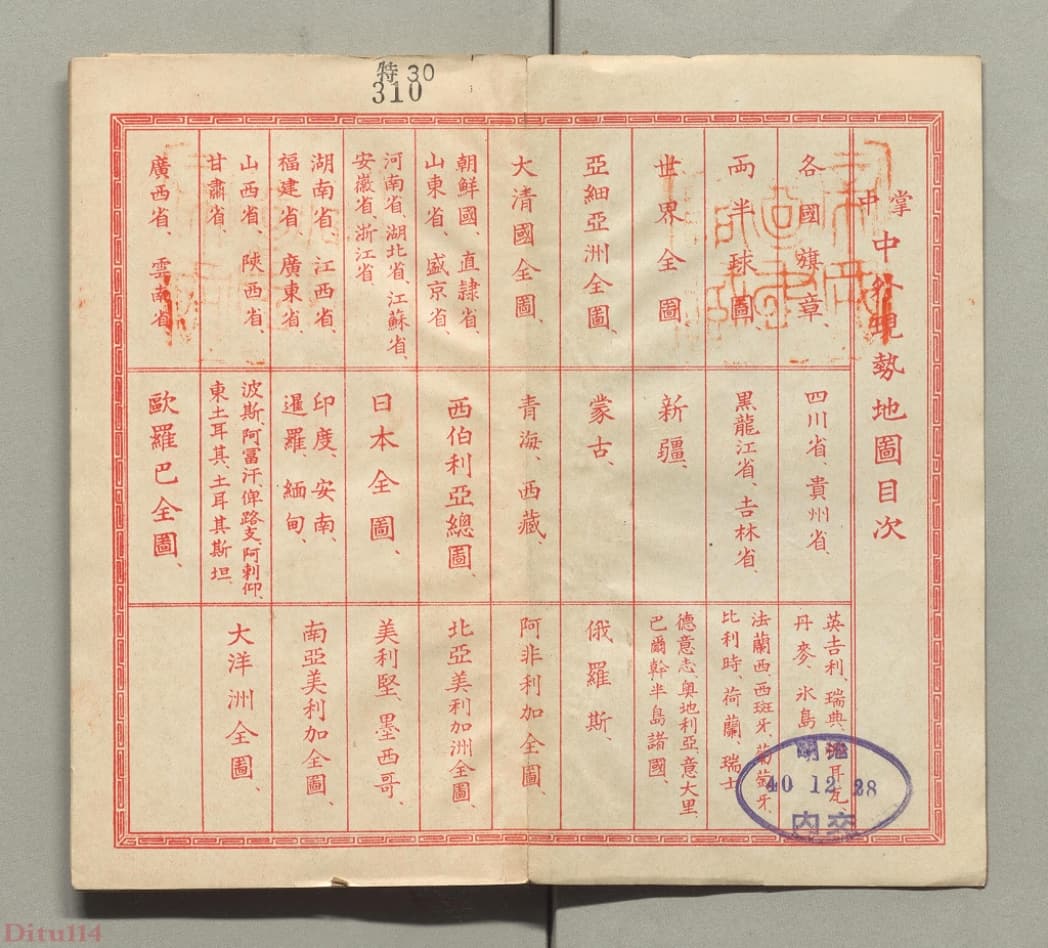 特30
310
掌中
中外現勢地圖目次
各國旗章、
兩半球圖、
世界全圖、
亞細亞洲全圖、
大清國全圖、
朝鮮國、直隷省、
山東省、盛京省、
河南省、湖北省、江蘇省、
安徽省、浙江省
湖南省、江西省、
福建省、廣東省、
山西省、陝西省、
甘肅省、
廣西省、雲南省、
四川省、貴州省、
黑龍江省、吉林省、
新疆、
蒙古、
青海、西藏、
西伯利亞總圖
日本全圖、
印度、安南、
暹羅、緬甸、
波斯、阿富汗、俾路支、阿剌仰、
東土耳其、土耳其斯坦、
歐羅巴全圖、
英吉利、瑞典、耳瓦
丹麥、氷島
法蘭西、西班牙、葡萄牙、
比利時、荷蘭、瑞士
德意志、奥地利亞、意大里、
巴爾幹半島諸國、
俄羅斯、
阿非利加全圖、
北亞美利加洲全圖、
美利堅、墨西哥、
南亞美利加全圖、
大洋洲全圖、
明治
40 12 28
内交
Ditu114